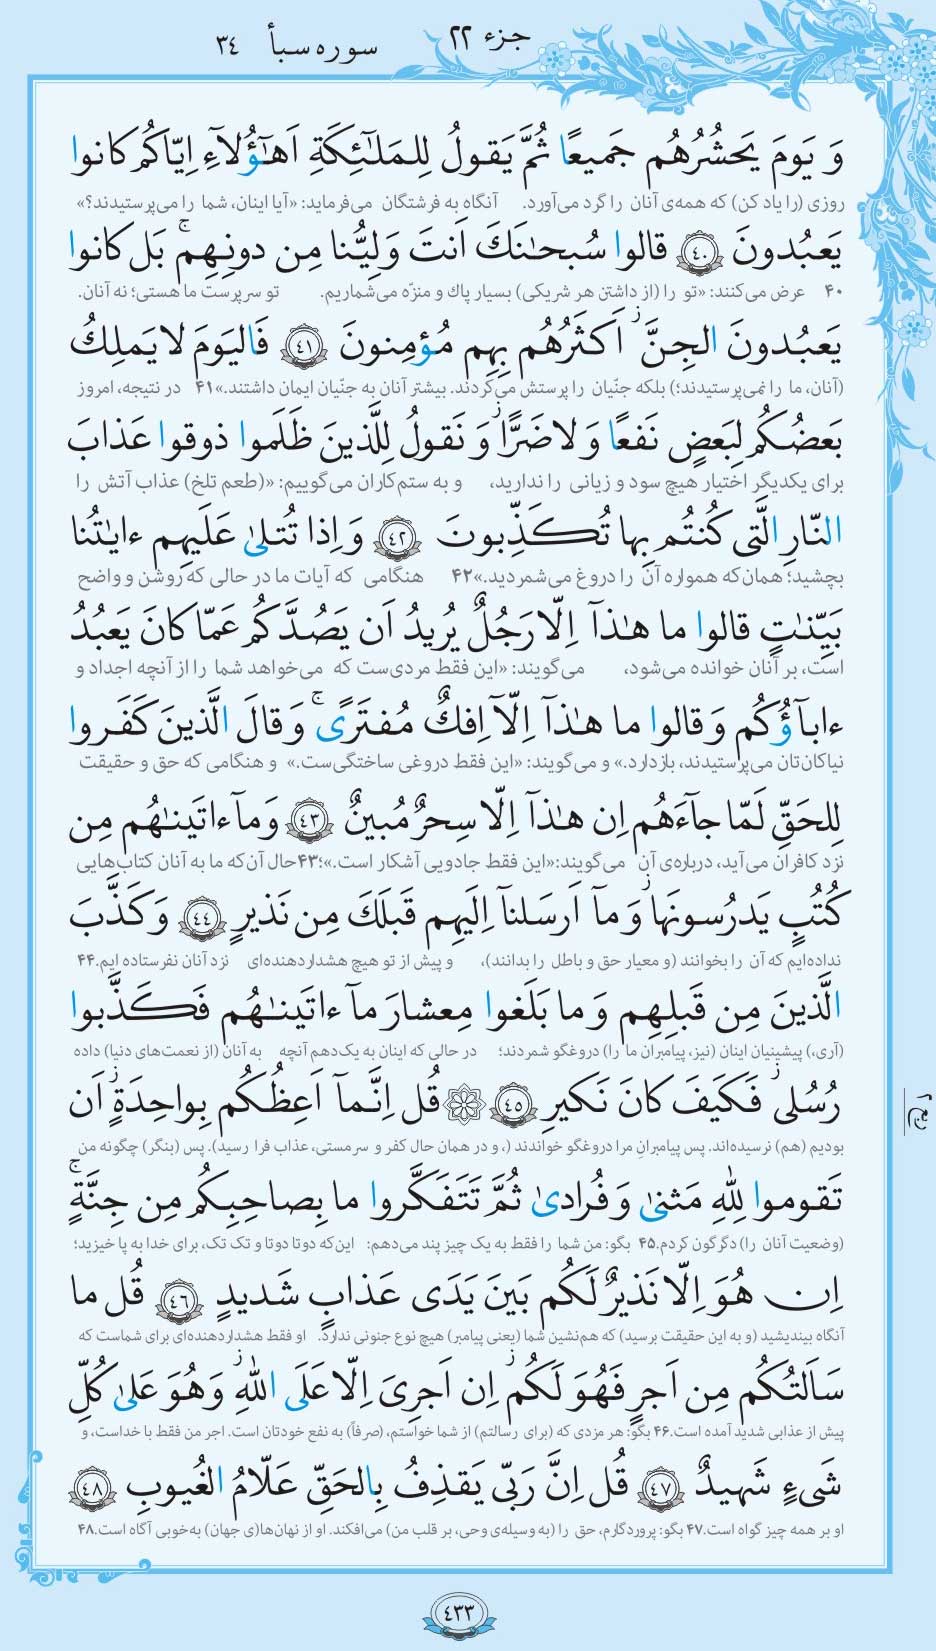 جزء ۲۲
سوره سبأ ۳٤
وَ يَومَ يَحشُرُهُم جَميعًا ثُمَّ يَقولُ لِلمَلٰٓئِكَةِ اَهٰٓؤُلآءِ اِيّاكُم كانوا
روزی (را یاد کن) که همه‌ی آنان را گرد می‌آورد. آنگاه به فرشتگان می‌فرماید: «آیا اینان، شما را می‌پرستیدند؟»
يَعبُدونَ ﴿٤٠﴾ قالوا سُبحٰنَكَ اَنتَ وَلِيُّنا مِن دونِهِم ۚ بَل كانوا
۴۰ عرض می‌کنند: «تو را (از داشتن هر شریکی) بسیار پاک و منزّه می‌شماریم. تو سرپرست ما هستی؛ نه آنان.
يَعبُدونَ الجِنَّ ۖ اَكثَرُهُم بِهِم مُؤمِنونَ ﴿٤١﴾ فَاليَومَ لا يَملِكُ
(آنان، ما را نمی‌پرستیدند؛) بلکه جنّیان را پرستش می‌کردند. بیشتر آنان به جنّیان ایمان داشتند.»۴۱ در نتیجه، امروز
بَعضُكُم لِبَعضٍ نَفعًا وَ لا ضَرًّا وَ نَقولُ لِلَّذينَ ظَلَموا ذوقوا عَذابَ
برای یکدیگر اختیار هیچ سود و زیانی را ندارید، و به ستم‌کاران می‌گوییم: «(طعم تلخ) عذاب آتش را
النّارِ الَّتى كُنتُم بِها تُكَذِّبونَ ﴿٤٢﴾ وَ اِذا تُتلىٰ عَلَيهِم ءايٰتُنا
بچشید؛ همان‌که همواره آن را دروغ می‌شمردید.»۴۲ هنگامی که آیات ما در حالی که روشن و واضح
بَيِّنٰتٍ قالوا ما هٰذآ اِلّا رَجُلٌ يُريدُ اَن يَصُدَّكُم عَمّا كانَ يَعبُدُ
است، بر آنان خوانده می‌شود، می‌گویند: «این فقط مردی‌ست که می‌خواهد شما را از آنچه اجداد و
ءابآؤُكُم وَ قالوا ما هٰذآ اِلّآ اِفكٌ مُفتَرًى ۚ وَ قالَ الَّذينَ كَفَروا
نیاکان‌تان می‌پرستیدند، بازدارد.» و می‌گویند: «این فقط دروغی ساختگی‌ست.» و هنگامی که حق و حقیقت
لِلحَقِّ لَمّا جآءَهُم اِن هٰذآ اِلّا سِحرٌ مُبينٌ ﴿٤٣﴾ وَ مآ ءاتَينٰهُم مِن
نزد کافران می‌آید، درباره‌ی آن می‌گویند:«این فقط جادویی آشکار است.»؛۴۳حال آن‌که ما به آنان کتاب‌هایی
كُتُبٍ يَدرُسونَها ۖ وَ مآ اَرسَلنآ اِلَيهِم قَبلَكَ مِن نَذيرٍ ﴿٤٤﴾ وَ كَذَّبَ
نداده‌ایم که آن را بخوانند (و معیار حق و باطل را بدانند)، و پیش از تو هیچ هشداردهنده‌ای نزد آنان نفرستاده ایم.۴۴
الَّذينَ مِن قَبلِهِم وَ ما بَلَغوا مِعشارَ مآ ءاتَينٰهُم فَكَذَّبوا
(آری،) پیشینیان اینان (نیز، پیامبران ما را) دروغگو شمردند؛ در حالی که اینان به یک‌دهم آنچه به آنان (از نعمت‌های دنیا) داده
رُسُلى ۖ فَكَيفَ كانَ نَكيرِ ﴿٤٥﴾ ۞ قُل اِنَّمآ اَعِظُكُم بِواحِدَةٍ ۖ اَن
بودیم (هم) نرسیده‌اند. پس پیامبرانِ مرا دروغگو خواندند (، و در همان حال کفر و سرمستی، عذاب فرا رسید). پس (بنگر) چگونه من
تَقوموا لِلّٰهِ مَثنىٰ وَ فُرادىٰ ثُمَّ تَتَفَكَّروا ما بِصاحِبِكُم مِن جِنَّةٍ ۚ
(وضعیت آنان را) دگرگون کردم.۴۵ بگو: من شما را فقط به یک چیز پند می‌دهم: این‌که دوتا دوتا و تک تک، برای خدا به پا خیزید؛
اِن هُوَ اِلّا نَذيرٌ لَكُم بَينَ يَدَى عَذابٍ شَديدٍ ﴿٤٦﴾ قُل ما
آنگاه بیندیشید (و به این حقیقت برسید) که هم‌نشین شما (یعنی پیامبر) هیچ نوع جنونی ندارد. او فقط هشداردهنده‌ای برای شماست که
سَاَلتُكُم مِن اَجرٍ فَهُوَ لَكُم ۖ اِن اَجرِىَ اِلّا عَلَى اللّٰهِ ۖ وَ هُوَ عَلىٰ كُلِّ
پیش از عذابی شدید آمده است.۴۶ بگو: هر مزدی که (برای رسالتم) از شما خواستم، (صرفاً) به نفع خودتان است. اجر من فقط با خداست، و
شَىءٍ شَهيدٌ ﴿٤٧﴾ قُل اِنَّ رَبّى يَقذِفُ بِالحَقِّ عَلّامُ الغُيوبِ ﴿٤٨﴾
او بر همه چیز گواه است.۴۷ بگو: پروردگارم، حق را (به وسیله‌ی وحی، بر قلب من) می‌افکند. او از نهان‌ها(ی جهان) به‌خوبی آگاه است.۴۸
٤٣٣